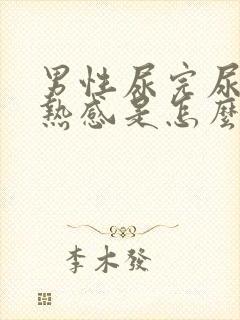 男性尿完尿
熱感是怎麼
李木發